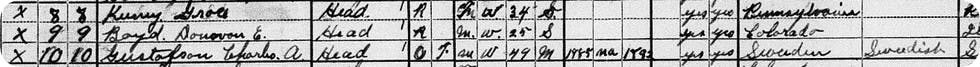 X 8 8 Kenny Grace Head R W 34 S yes yes Pennsylvania
X 9 9 Boyd. Donovan E. Head R M. W. 25 S yes yes Colorado
X 10 10 Gustafson Charles. A. Head O F. M W 49 M 1885 na 1892 yes yes Sweden Swedish